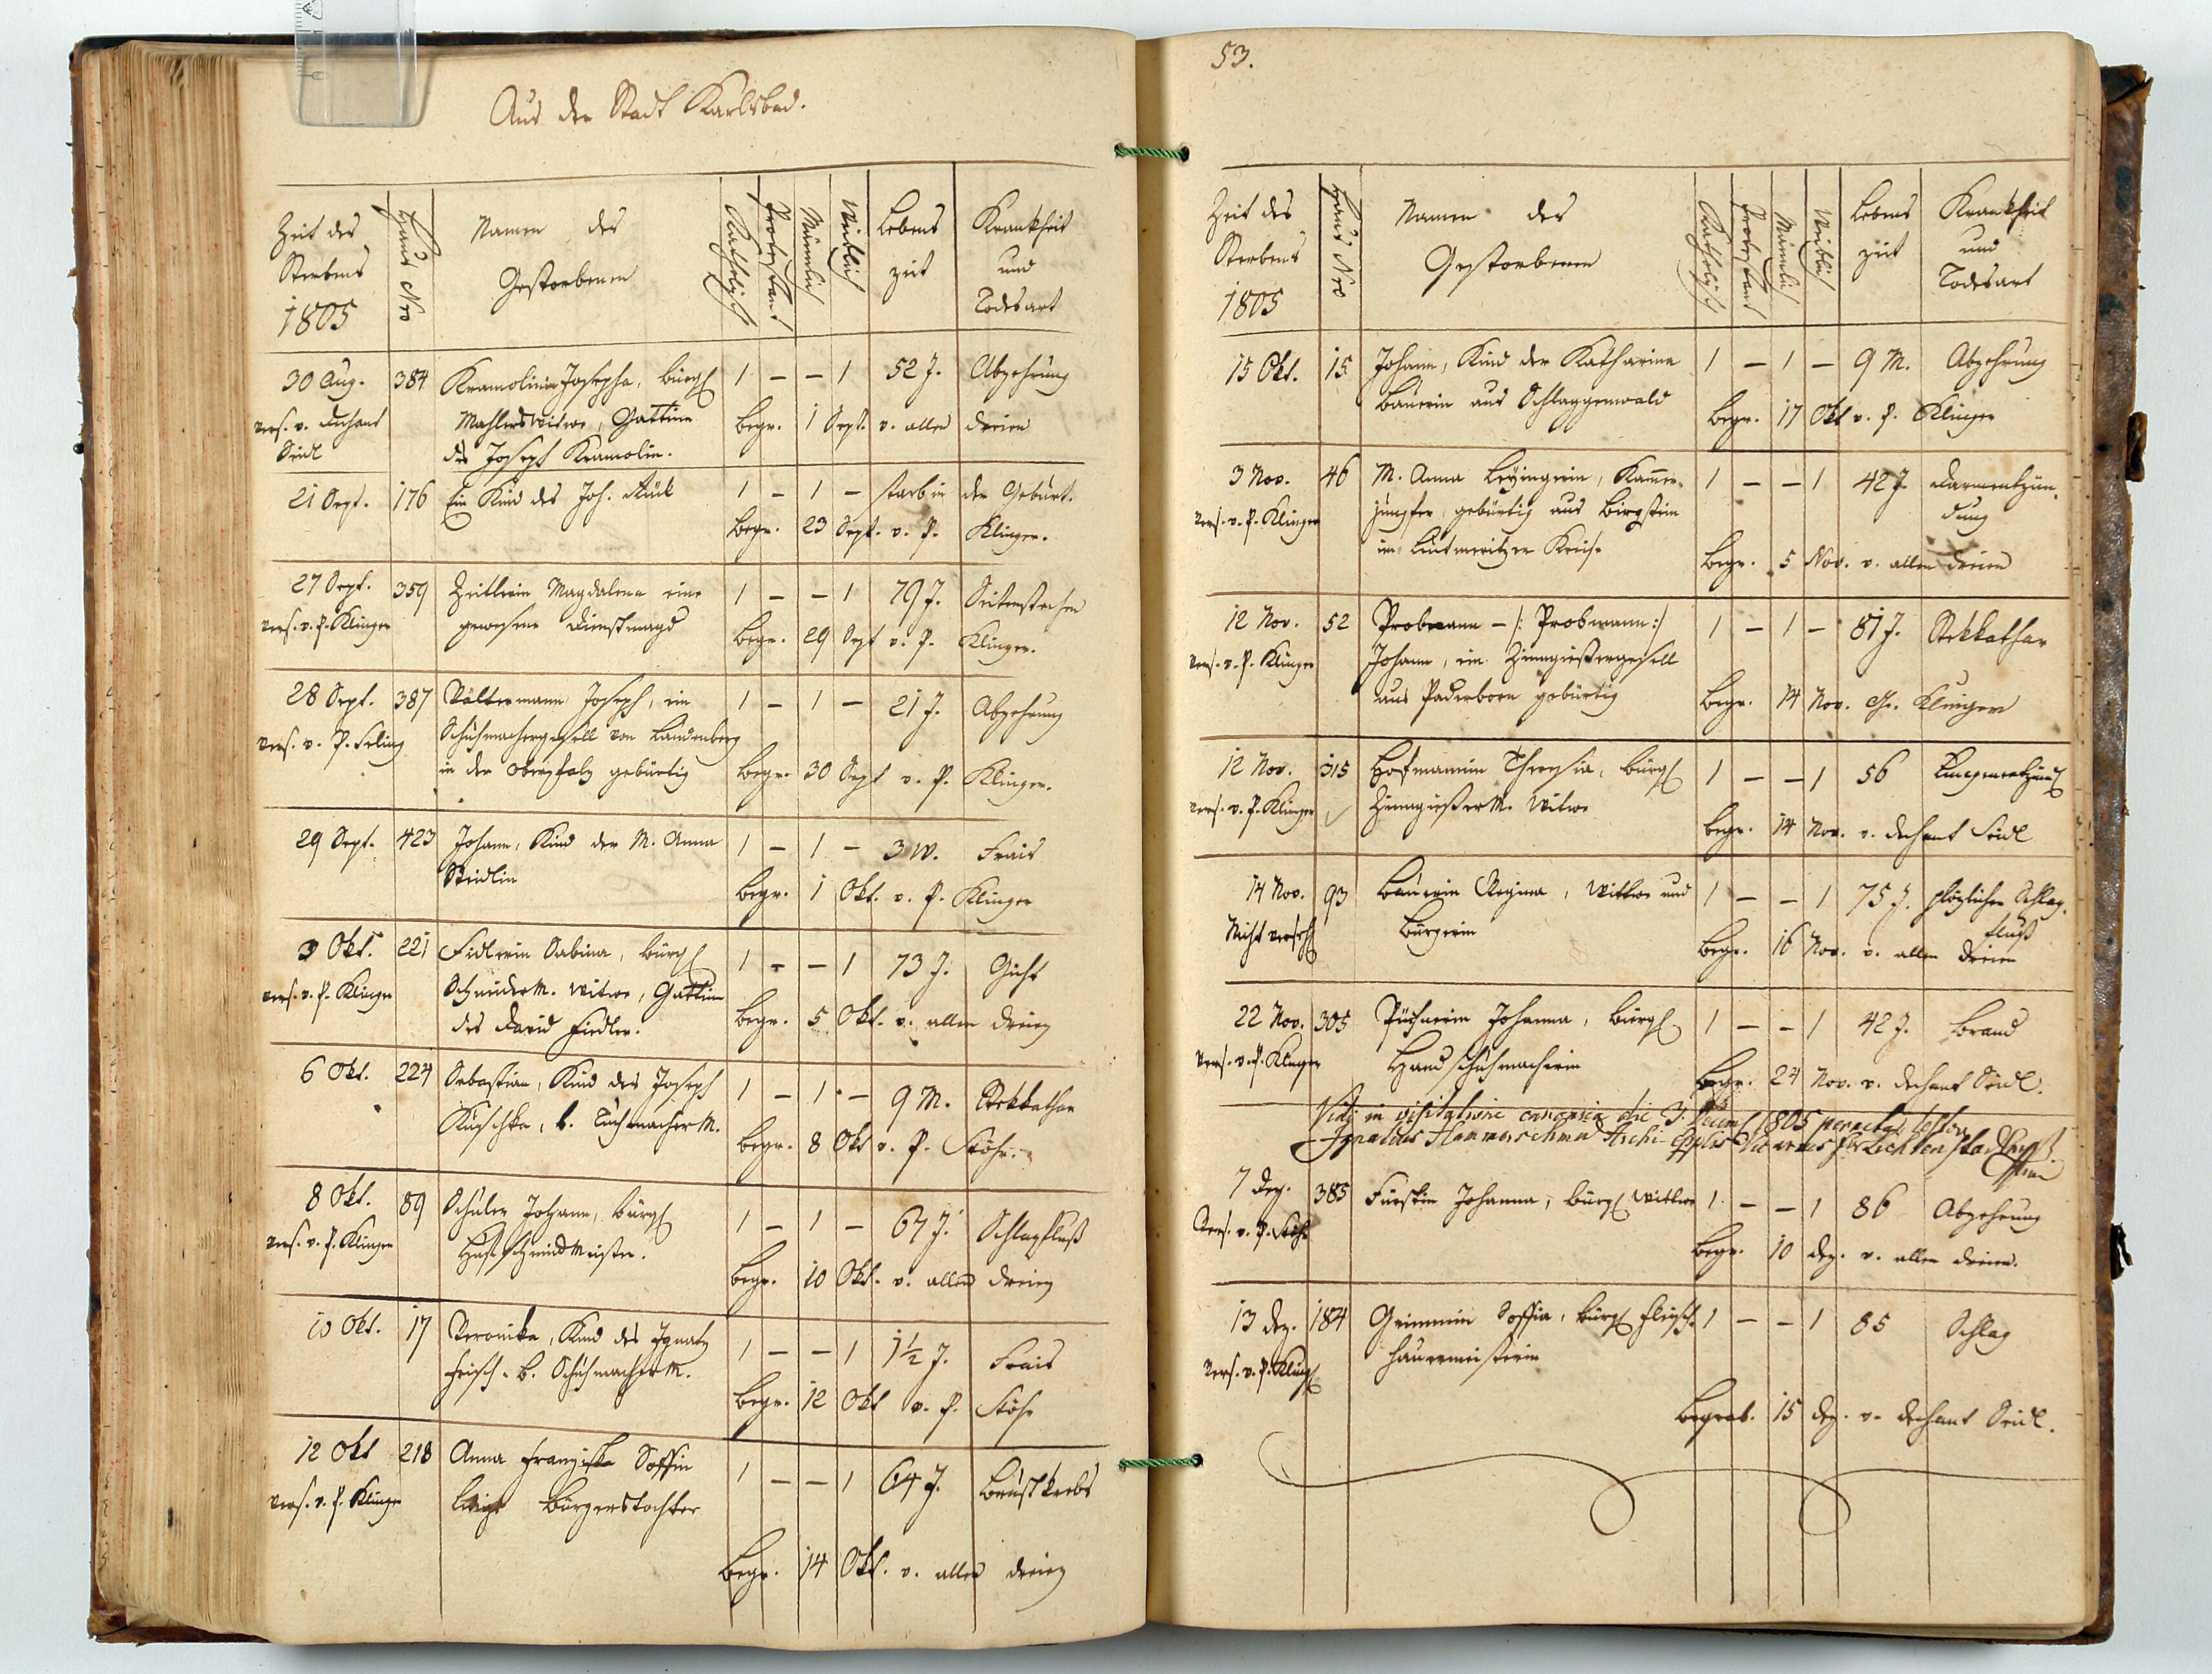 Aus der Stadt Karlsbad.
Zeit des
Sterbens
1805
Haus Nro
Namen des
Gestorbenen
Katholisch
Protestant
Männlich
Weiblich
Lebens
zeit
Krankheit
und
Todesart
30 Aug. 384 Kramolinin Josepha, bürgl 1 – – 1 52 J. Abzehrung
vers. v. Dechant Mahlers Witwe, Gattinn Begr. 1 Sept. v. allen dreien
Seidl des Joseph Kramolin.
21 Sept. 176 Ein Kind des Joh. 1 – 1 – starb in der Geburt.
Begr. 23 Sept. v. P. Klinger.
27 Sept. 359 Zeitlerin Magdalena eine 1 – – 1 79 J. Seitenstechen
vers. v. P. Klinger gewesene Dienstmagd Begr. 29 Sept v. P. Klinger.
28 Sept. 387 Voltermann Joseph, ein 1 – 1 – 21 J. Abzehrung
vers. v. P. Schuhmachergesell von Landenberg
in der Oberpfalz gebürtig Begr. 30 Sept v. P. Klinger.
29 Sept. 423 Johann, Kind der M. Anna 1 – 1 – 3 W. Frais
Seidlin Begr. 1 Okt. v. P. Klinger
3 Okt. 221 Fidlerin Sabina, bürgl 1 – – 1 73 J. Gicht
vers. v. P. Klinger Schneider M. Witwe, Gattinn Begr. 5 Okt. v. allen dreien
des David Fiedler.
6 Okt. 224 Sebastian, Kind des Joseph 1 – 1 – 9 M. Stekkathar
Kuschka, b. Tuchmacher M. Begr. 8 Okt v. P. Stöhr.
8 Okt. 89 Schuler Johann, bürgl 1 – 1 – 67 J. Schlagfluß
vers. v. P. Klinger Hufschmiedmeister. Begr. 10 Okt. v. allen dreien
10 Okt. 17 Veronika, Kind des Ignatz 1 – – 1 1½ J. Frais
Frisch, b. Schuhmacher M. Begr. 12 Okt v. P. Stöhr
12 Okt 218 Anna Franziska Soffin 1 – – 1 64 J. Brustkrebs
vers. v. P. Klinger ledige Bürgerstochter
Begr. 14 Okt. v. allen dreien
53.
Zeit des
Sterbens
1805
Haus Nro
Namen der
Gestorbenen
Katholisch
Protestant
Männlich
Weiblich
Lebens
zeit
Krankheit
und
Todesart
15 Okt. 15 Johann, Kind der Katharina 1 – 1 – 9 M. Abzehrung
Bäuerin aus Schlaggenwald Begr. 17 Okt v. P. Klinger
3 Nov. 46 M. Anna Kammer- 1 – – 1 42 J. Darmentzün-
vers. v. P. Klinger jungfer, gebürtig aus Birgstein dung
im Leutmeritzer Kreise Begr. 5 Nov. v. allen dreien
12 Nov. 52 Probmann – /: Probmann :/ 1 – 1 – 81 J. Stekkathar
vers. v. P. Klinger Johann, ein Zinngießergesell
aus Paderborn gebürtig Begr. 14 Nov. Klinger
12 Nov. 315 Hofmannin Theresia, bürgl 1 – – 1 56
vers. v. P. Klinger Zinngießer M. Witwe Begr. 14 Nov. v. Dechant Seidl
14 Nov. 93 Bäuerin Regina, Wittwe und 1 – – 1 75 J. plözlicher Schlag-
Nicht Bürgerin fluß
Begr. 16 Nov. v. allen dreien
22 Nov. 305 Püchnerin Johanna, bürgl 1 – – 1 42 J. Brand
vers. v. P. Klinger Handschuhmacherin Begr. 24 Nov. v. Dechant Seidl.
Vidi in visitatione canonica die 3. 1805 peracta, testor
Ignatius Hammerschmid Archi-
7 Dez. 385 Fürstin Johanna, bürgl Wittwe 1 – – 1 86 Abzehrung
Vers. v. P. Stöhr Begr. 10 Dez. v. allen dreien.
13 Dez. 184 Grimmin Soffia, bürgl Fleisch- 1 – – 1 85 Schlag
Vers. v. P. Klingl hauermeisterin
Begrab. 15 Dez. v. Dechant Seidl.